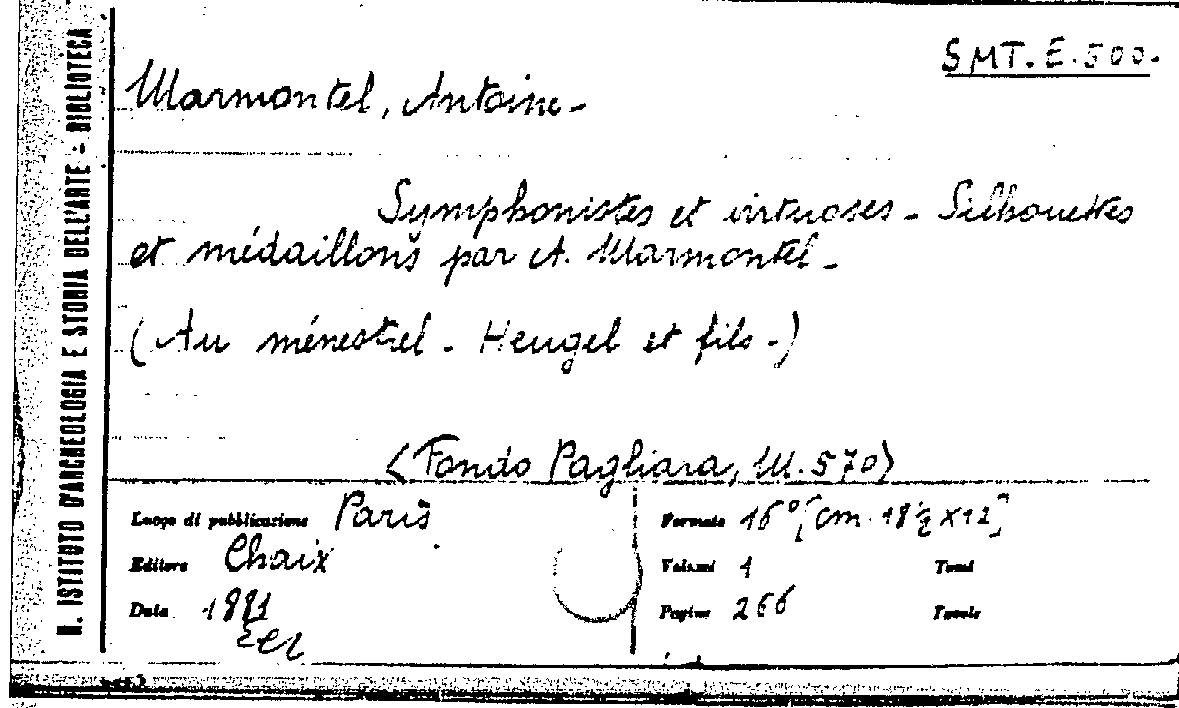 R. ISTITUTO D'ARCHEOLOGIA E STORIA DELL'ARTE - BIBLIOTECA
SMT. E. 500.
Marmontel, Antoine -
Symphonistes et virtuoses - Silhouettes
et médaillons par A. Marmontel -
(Au ménestrel - Heugel et fils -)
<Fondo Pagliara, M. 570>
Luogo di pubblicazione Paris
Editore Chaix
Data 1881
Formato 16° [cm. 18½ x 12]
Volumi 1 Tomi
Pagine 266 Tavole